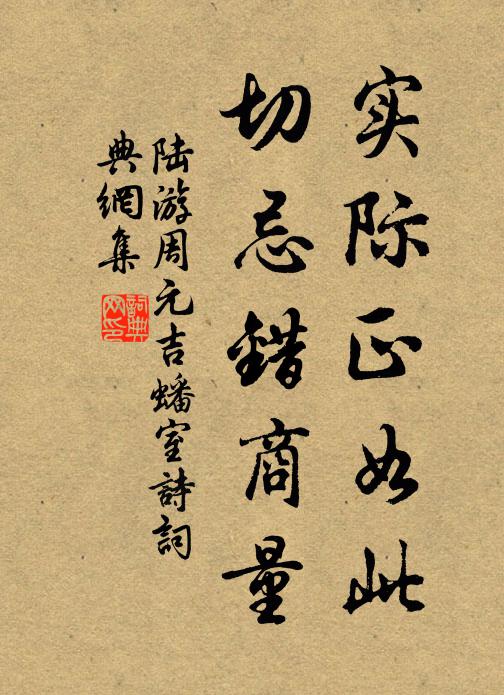 实际正如此
切忌错商量
陆游周元吉蟠室诗词
典網集
詞典
网印